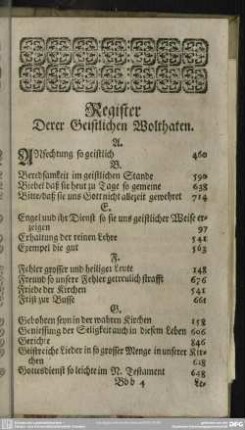 Register
Derer Geistlichen Wolthaten.
A.
ANfechtung so geistlich 460
B.
Beredsamkeit im geistlichen Stande 590
Biebel daß sie heut zu Tage so gemeine 638
Bitte/daß sie uns Gott nicht allezeit gewehret 714
E.
Engel und ihr Dienst so sie uns geistlicher Weise er-
zeigen 97
Erhaltung der reinen Lehre 541
Exempel die gut 163
F.
Fehler grosser und heiliger Leute 148
Freund so unsere Fehler getreulich strafft 676
Friede der Kirchen 541
Frist zur Busse 661
G.
Gebohren seyn in der wahren Kirchen 158
Geniessung der Seligkeit auch in diesem Leben 606
Gerichte 846
Geistreiche Lieder in so grosser Menge in unserer Kir-
chen 618
Gottesdienst so leichte im N. Testament 658
Bbb 4